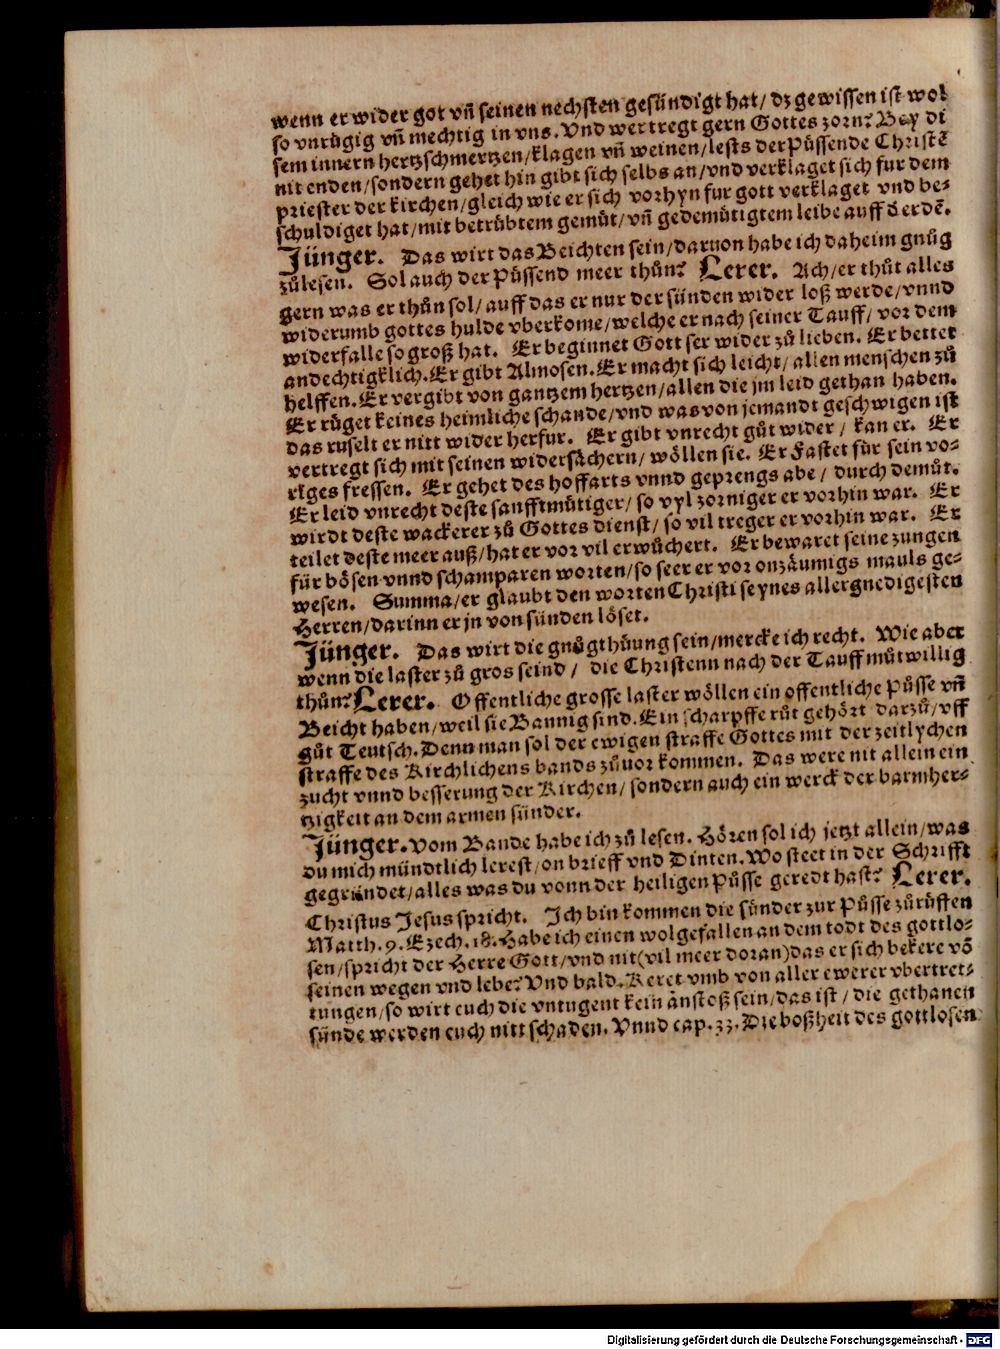 wenn er wider got vñ seinen nechsten gesündigt hat/ dz gewissen ist wol
so vnrůgig vñ mechtig in vns. Vnd wer tregt gern Gottes zorn? Bey di
sem innern hertzschmertzen/ klagen vñ weinen/ lests der Püssende Christẽ
nit enden/ sondern gehet hin gibt sich selbs an/ vnd verklaget sich fur dem
priester der kirchen/ gleich wie er sich vorhyn fur gott verklaget vnd be⸗
schuldiget hat/ mit betrübtem gemüt/ vñ gedemütigtem leibe auff d̕ erdẽ.
Jünger. Das wirt das Beichten sein/ daruon habe ich daheim gnůg
zůlesen. Sol auch der Püssend meer thůn? Lerer. Ach/ er thůt alles
gern was er thůn sol/ auff das er nur der sünden wider loß werde/ vnnd
widerumb gottes hulde vberkome/ welche er nach seiner Tauff/ vor dem
widerfalle so groß hat. Er beginnet Gott ser wider zů lieben. Er bettet
andechtigklich. Er gibt Almosen. Er macht sich leicht/ allen menschen zů
helffen. Er vergibt von gantzem hertzen/ allen die jm leid gethan haben.
Er růget keines heimliche schande/ vnd was von jemandt geschwigen ist
das ruselt er nitt wider herfur. Er gibt vnrecht gůt wider/ kan er. Er
vertregt sich mit seinen widersåchern/ wöllen sie. Er Fastet für sein vo⸗
riges fressen. Er gehet des hoffarts vnnd geprengs abe/ durch demůt.
Er leid vnrecht deste saufftmütiger/ so vyl zorniger er vorhin war. Er
wirdt deste wackerer zů Gottes dienst/ so vil treger er vorhin war. Er
teilet deste meer auß/ hat er vor vil erwůchert. Er bewaret seine zungen
für bösen vnnd schamparen worten/ so seer er vor onzäumigs mauls ge⸗
wesen. Summa/ er glaubt den worten Christi seynes allergnedigesten
Herren/ darinn er jn von sünden löset.
Jünger. Das wirt die gnůgthůung sein/ mercke ich recht. Wie aber
wenn die laster zů gros seind/ die Christenn nach der Tauff můtwillig
thůn? Lerer. Offentliche grosse laster wöllen ein offentliche Půsse vñ
Beicht haben/ weil sie Bannig sind. Ein scharpffe růt gehört darzů/ vff
gůt Teutsch. Denn man sol der ewigen straffe Gottes mit der zeitlychen
straffe des Kirchlichens bands zůuor kommen. Das were nit allein ein
zucht vnnd besserung der Kirchen/ sondern auch ein werck der barmher⸗
tzigkeit an dem armen sünder.
Jünger. Vom Bande habe ich zů lesen. Hören sol ich jetzt allein/ was
du mich mündtlich lerest/ on brieff vnd Dinten. Wo steet in der Schrifft
gegründet/ alles was du vonn der heiligen Půsse geredt hast? Lerer.
Christus Jesus spricht. Ich bin kommen die sünder zur Půsse zůrůffen
Matth. 9. Ezech. 18. Habe ich einen wolgefallen an dem todt des gottlo⸗
sen/ spricht der Herre Gott/ vnd nit (vil meer doran) das er sich bekere võ
seinen wegen vnd lebe? Vnd bald. Keret vmb von aller ewerer vbertret⸗
tungen/ so wirt euch die vntugent kein anstoß sein/ das ist/ die gethanen
sünde werden euch nitt schaden. Vnnd cap. 33. Die boßheit des gottlosen
Digitalisierung gefördert durch die Deutsche Forschungsgemeinschaft - DFG